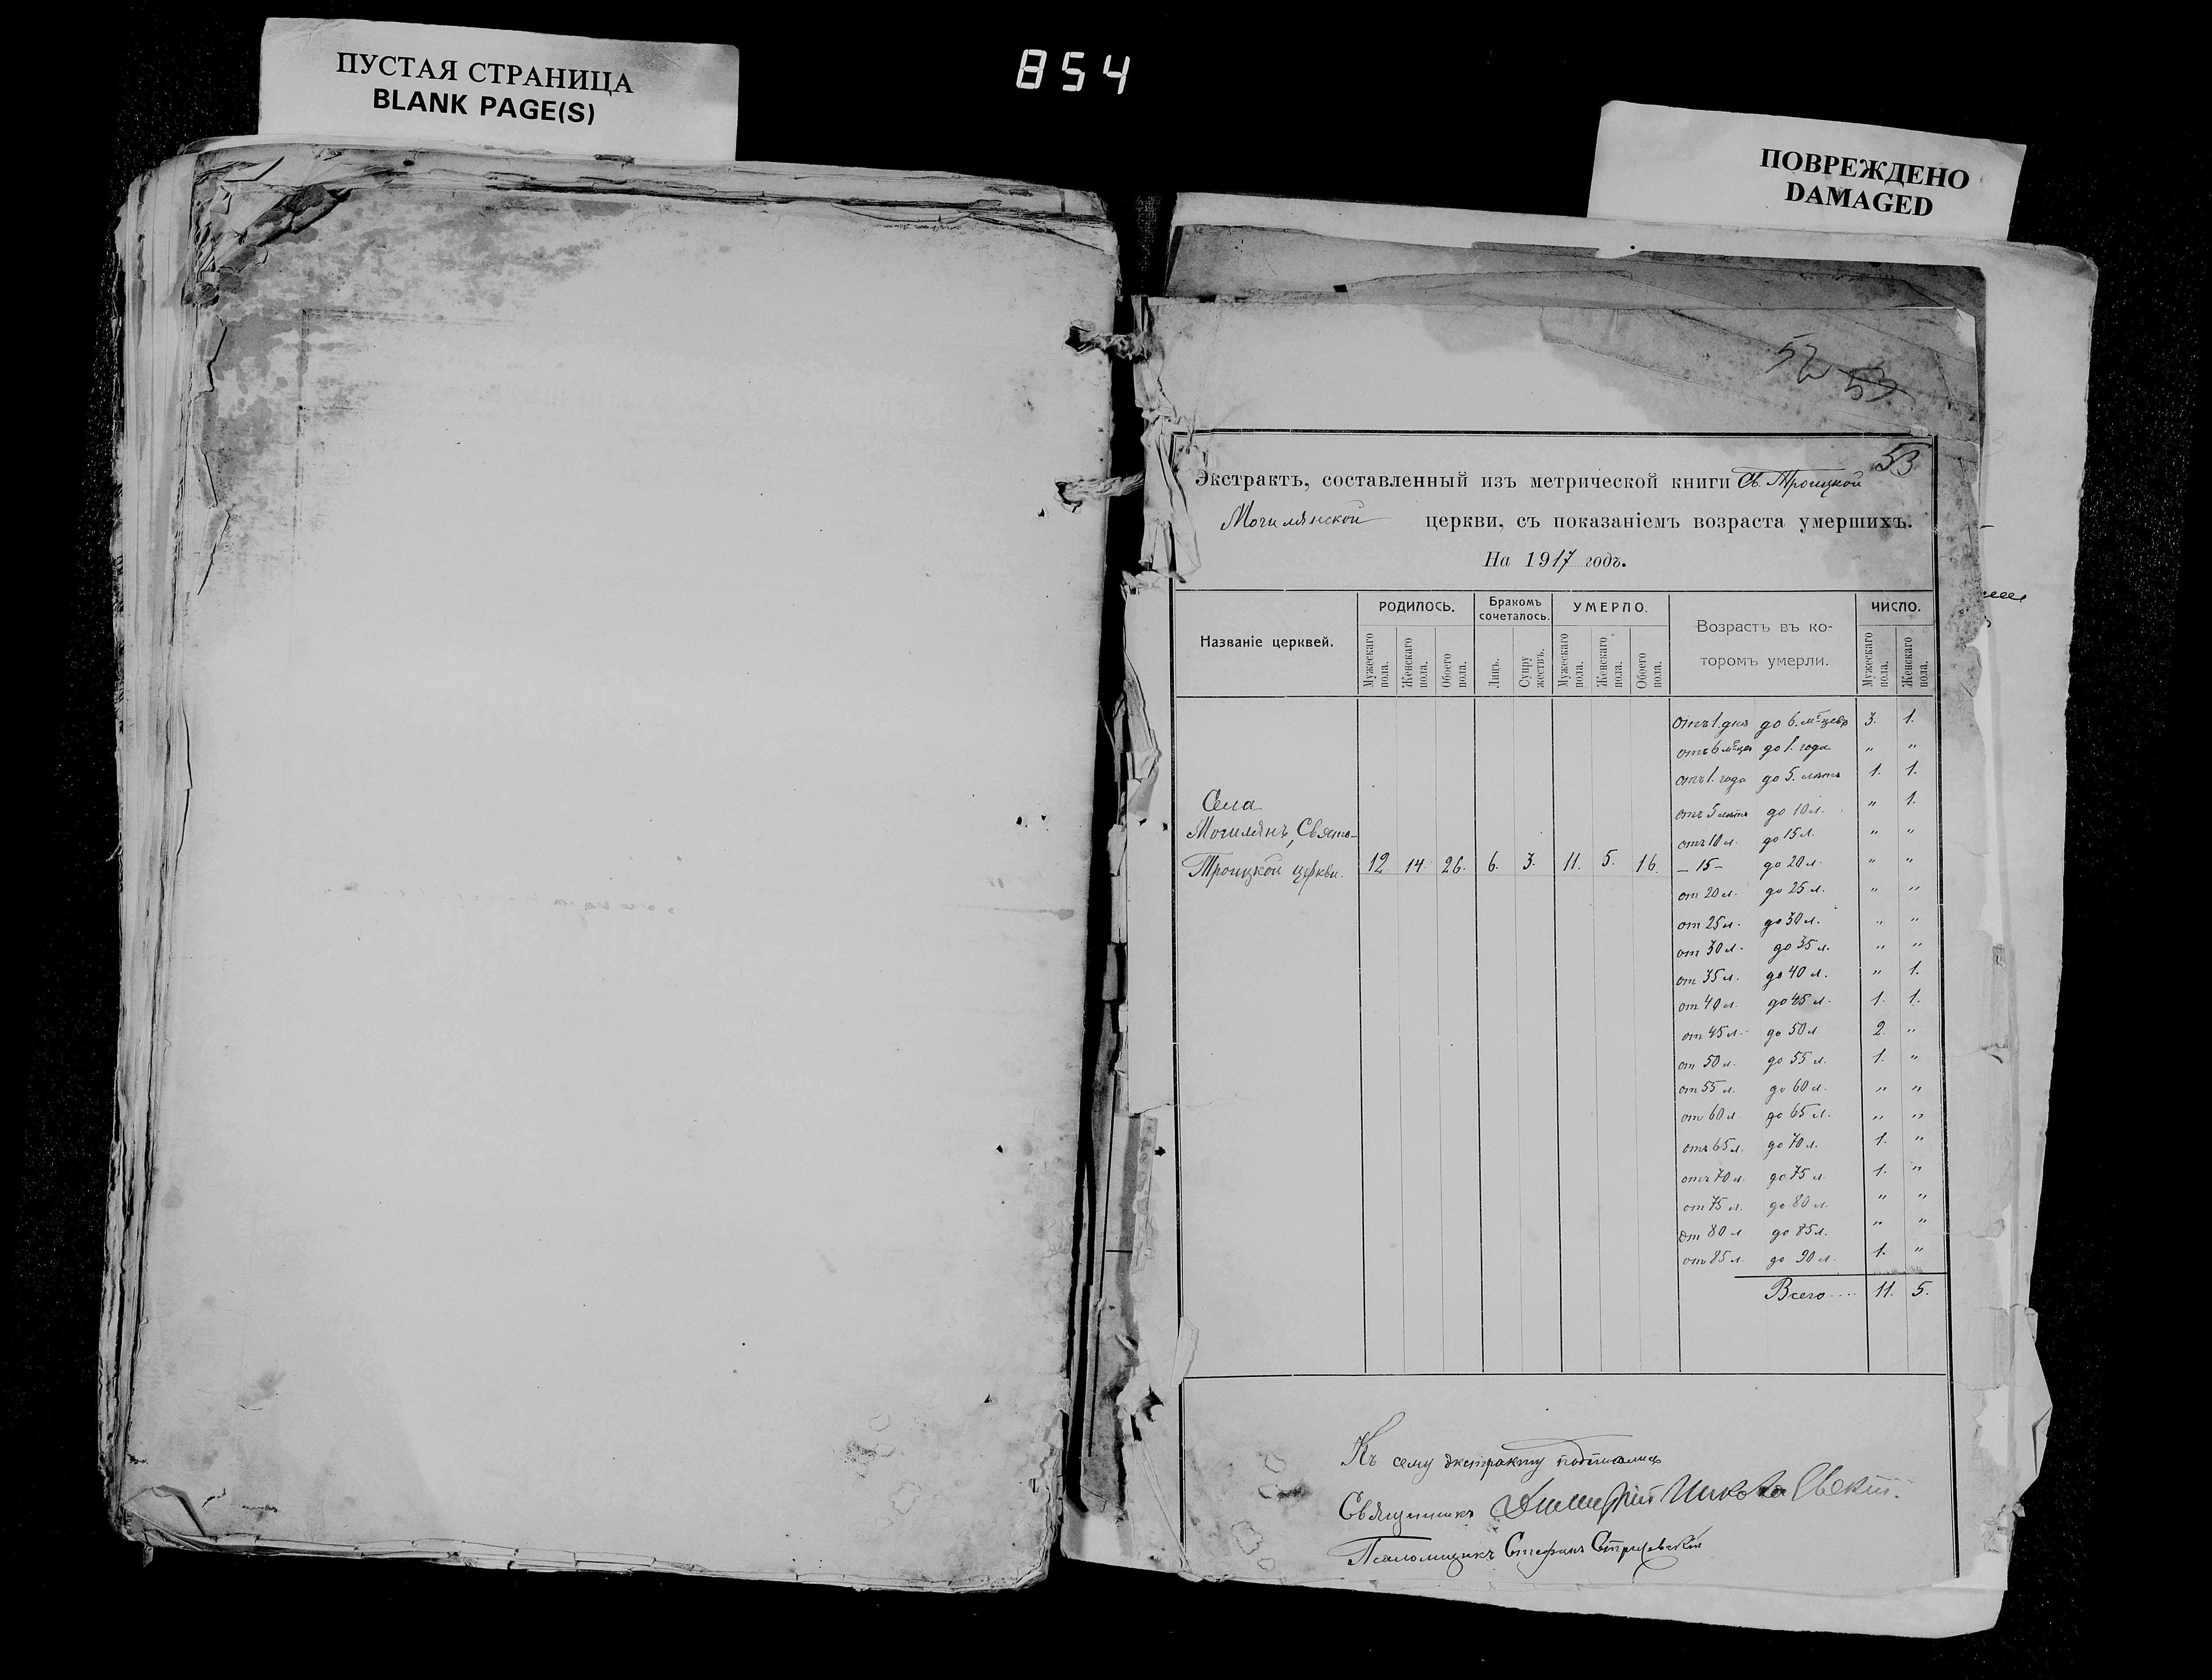 ПУСТАЯ СТРАНИЦА
BLANK PAGE(S)
854
ПОВРЕЖДЕНО
DAMAGED
52 53
53
Экстрактъ, составленный изъ метрической книги Св. Троицкой
Могилянской церкви, съ показаніемъ возраста умершихъ.
На 1917 годъ.
Названіе церквей.
РОДИЛОСЬ.
Мужескаго пола.
Женскаго пола.
Обоего пола.
Бракомъ сочеталось.
Лицъ.
Супружествъ.
УМЕРЛО.
Мужескаго пола.
Женскаго пола.
Обоего пола.
Возрастъ въ которомъ умерли.
ЧИСЛО.
Мужескаго пола.
Женскаго пола.
Села
Могилянъ, Свято-
Троицкой церкви. 12 14 26. 6. 3. 11. 5. 16.
Отъ 1. дня до 6. м-цевъ 3. 1.
отъ 6 м-цев до 1. года " "
отъ 1. года до 5. летъ 1. 1.
отъ 5 летъ до 10 л. " 1.
отъ 10 л. до 15 л. " "
– 15 – до 20 л. " "
от 20 л. до 25 л. " "
от 25 л. до 30 л. " "
от 30 л. до 35 л. " "
от 35 л. до 40 л. " 1.
от 40 л. до 45 л. 1. 1.
от 45 л. до 50 л 2. "
от 50 л. до 55 л. 1. "
от 55 л. до 60 л. " "
от 60 л до 65 л. " "
отъ 65 л. до 70 л. 1. "
отъ 70 л. до 75 л. 1. "
от 75 л. до 80 л. " "
от 80 л. до 85 л. " "
от 85 л. до 90 л. 1. "
Всего .... 11. 5.
Къ сему экстракту подписались
Священникъ Димитрій
Псаломщикъ Стефанъ